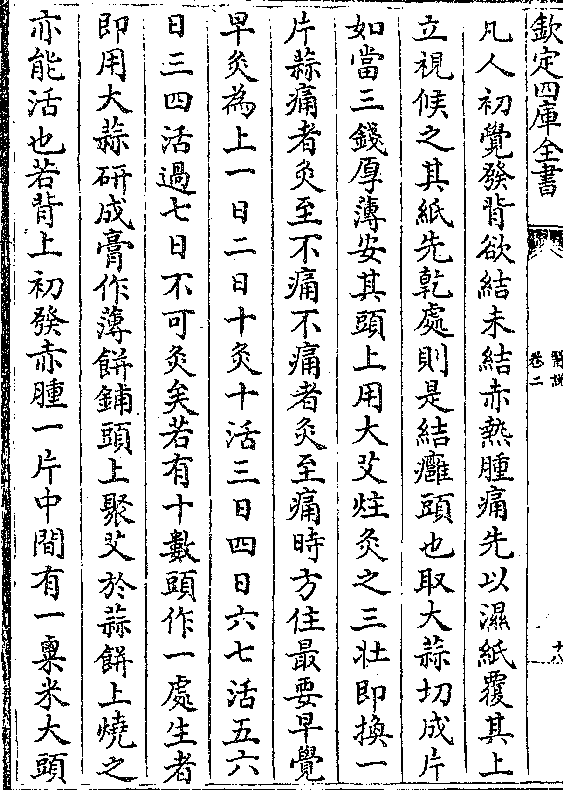 欽定四庫全書
醫說
卷二
十八
凡人初覺發背欲結未結赤熱腫痛先以濕紙覆其上
立視候之其紙先乾處則是結癰頭也取大蒜切成片
如當三錢厚薄安其頭上用大艾炷灸之三壯即換一
片蒜痛者灸至不痛不痛者灸至痛時方住最要早覺
早灸為上一日二日十灸十活三日四日六七活五六
日三四活過七日不可灸矣若有十數頭作一處生者
即用大蒜研成膏作薄餅鋪頭上聚艾於蒜餅上燒之
亦能活也若背上初發赤腫一片中間有一粟米大頭